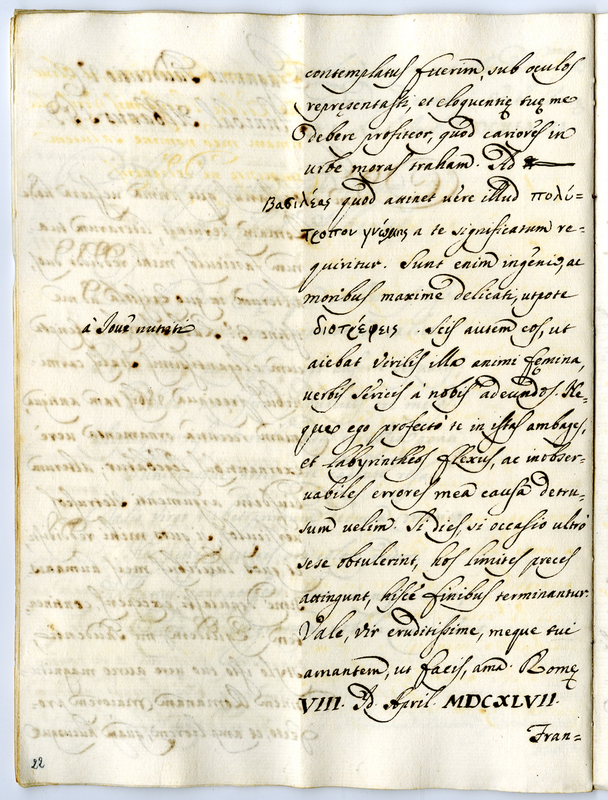 contemplatus fuerim, sub oculos
repręsentasti, et eloquentię tuę me
debere profiteor, quòd cariores in
urbe moras traham. Ad
Βασιλέας quod attinet verè illud πολύ-
τροπον γνώμης a te significatum re-
quiritur. Sunt enim ingenio, ac
moribus maxime delicati, utpote
à Iove nutriti
διοτρέφεις. Scis autem eos, ut
aiebat virilis illa animi femina,
verbis sericis à nobis adeundos. Ne-
que ego profectò te in istas ambages,
et labyrintheos flexus, ac inobser-
vabiles errores meâ causâ detru-
sum velim. Si dies, si occasio ultrò
sese obtulerint, hos limites preces
attingunt, hisce finibus terminantur.
Vale, vir eruditissime, meque tui
amantem, ut facis, ama. Romę
VIII. Id. April. MDCXLVII.
Fran-
22